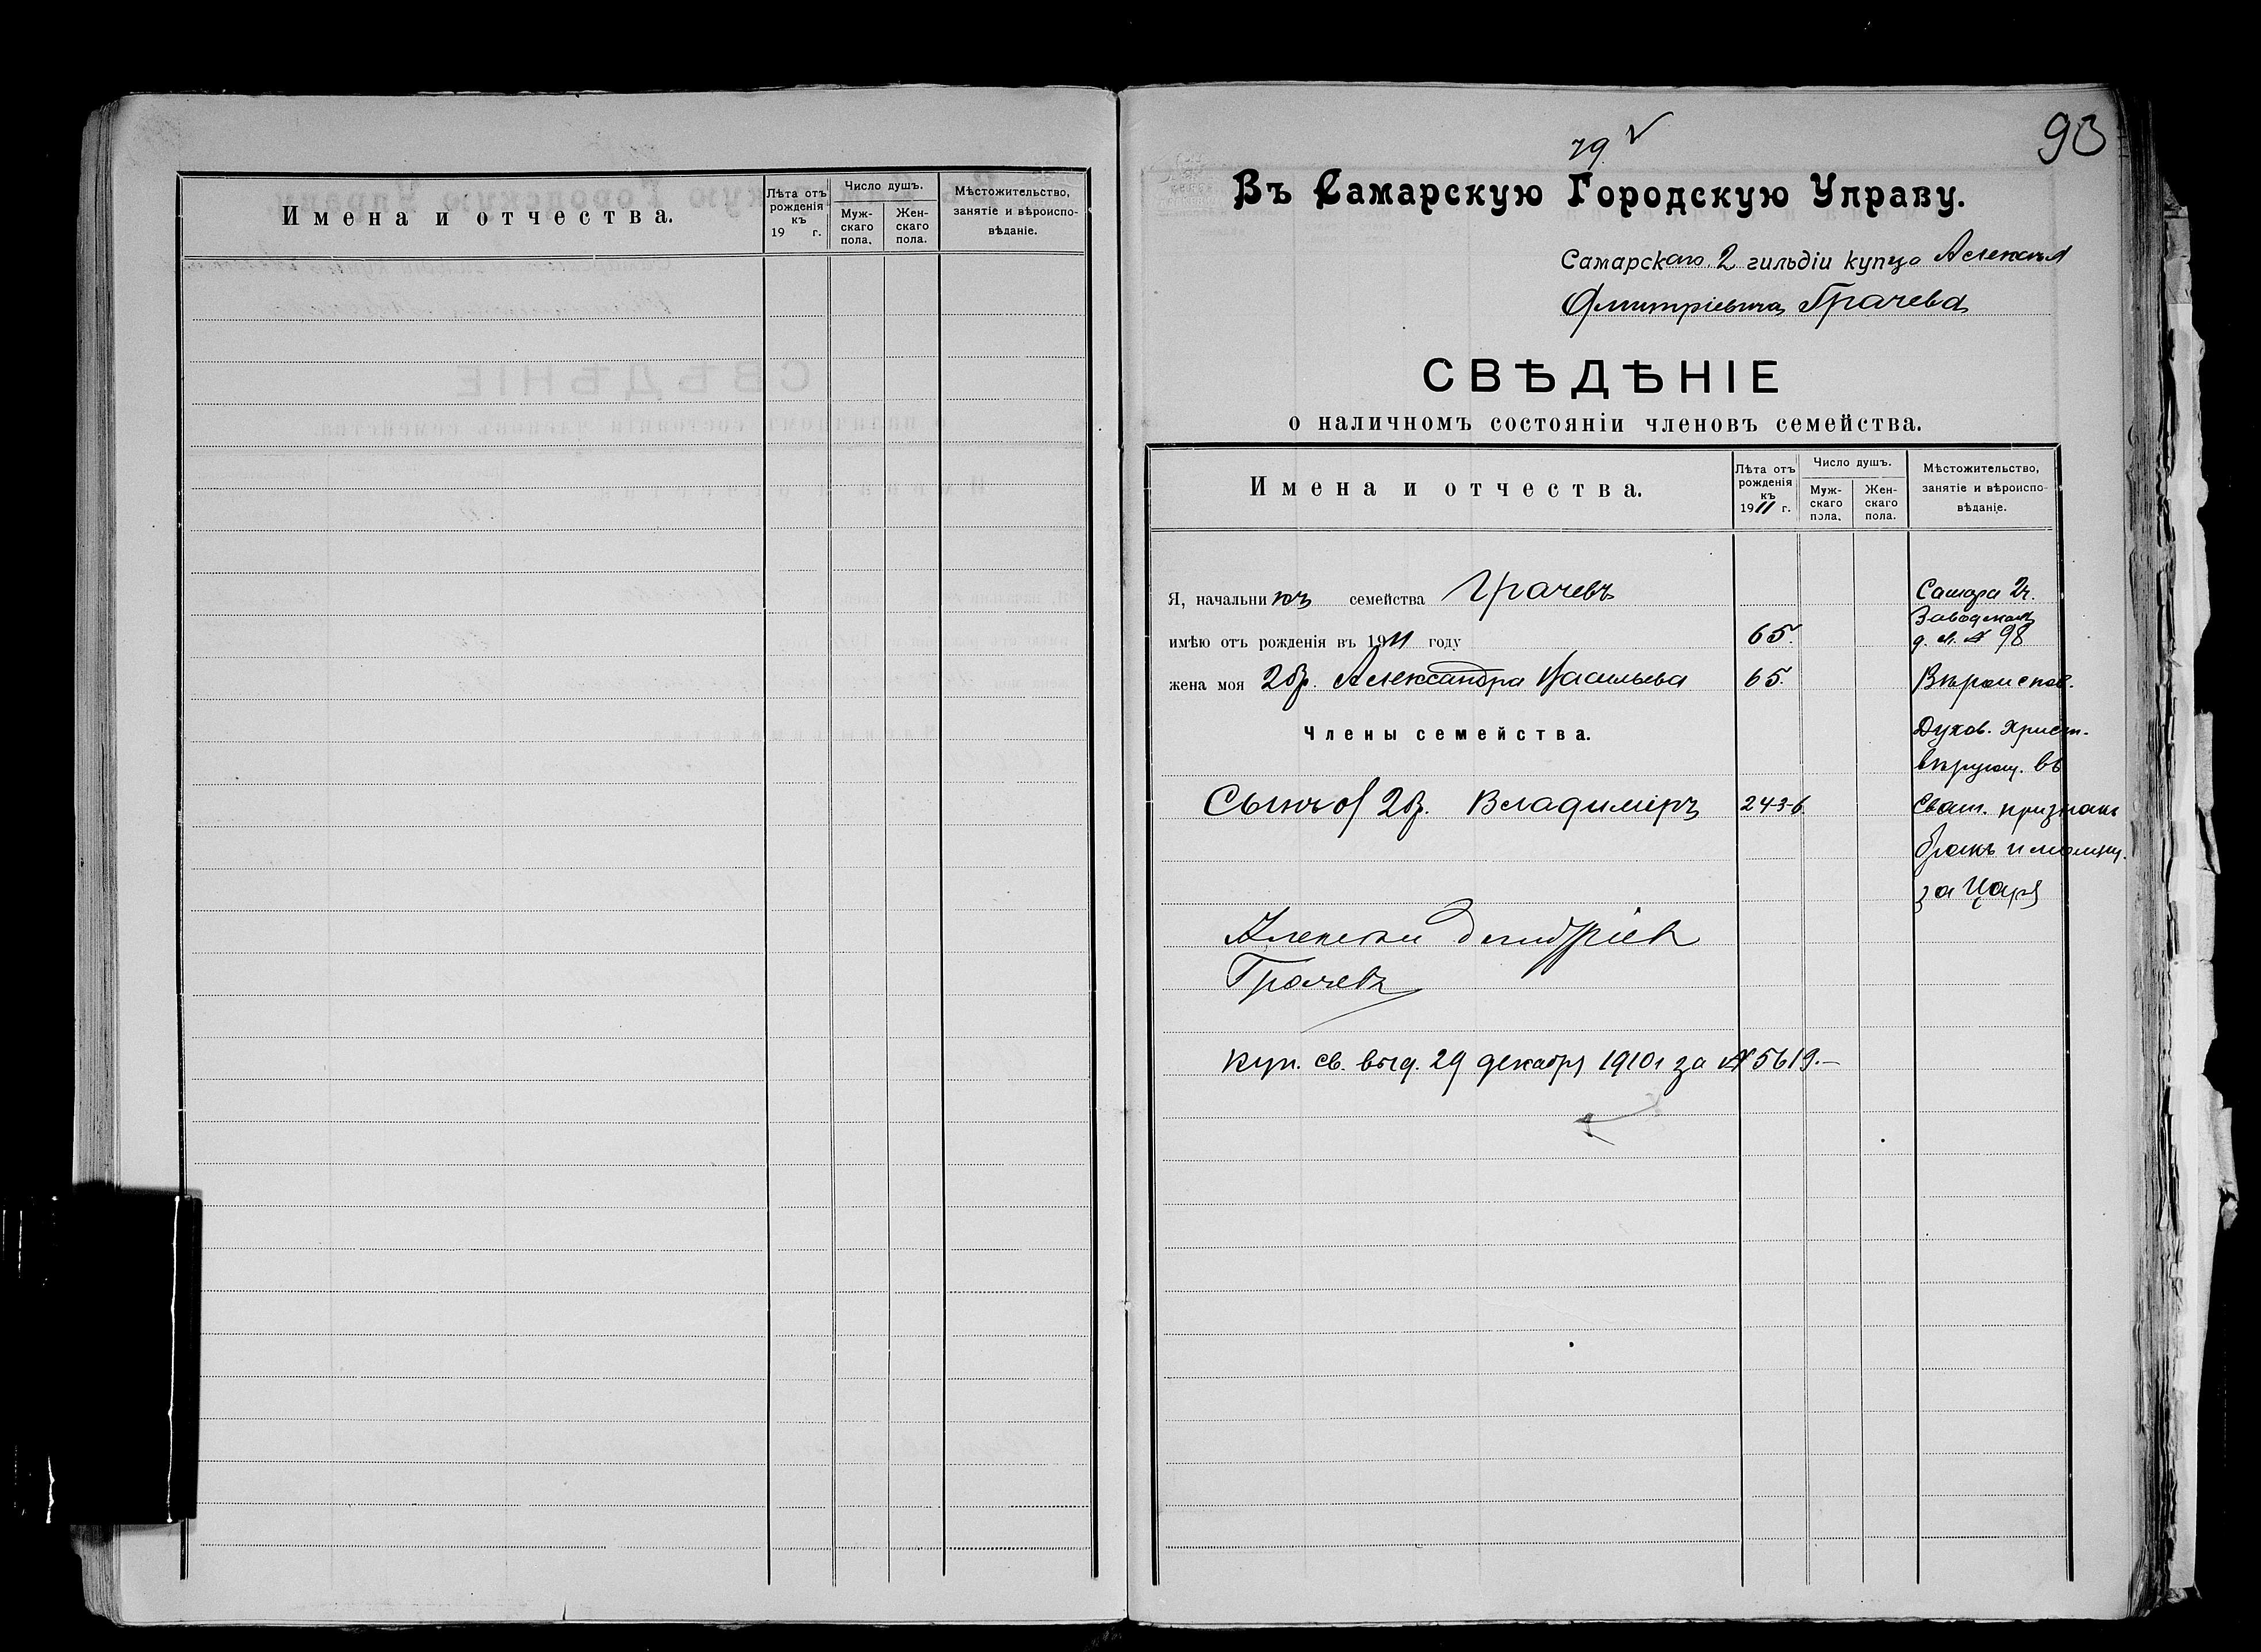 Имена и отчества.
Лѣта отъ рожденія къ 19 г.
Число душъ.
Муж-скаго пола.
Жен-скаго пола.
Мѣстожительство, занятіе и вѣроиспо-вѣданіе.
79. 
93
Въ Самарскую Городскую Управу.
Самарскаго 2 гильдіи купца Алексѣя
Дмитріевича Грачева
СВѢДѢНІЕ
о наличномъ состояніи членовъ семейства.
Имена и отчества.
Лѣта отъ рожденія къ 1911 г.
Число душъ.
Муж-скаго пола.
Жен-скаго пола.
Мѣстожительство, занятіе и вѣроиспо-вѣданіе.
Я, начальникъ семейства Грачевъ
Самара 2ч.
Заводская
имѣю отъ рожденія въ 1911 году 65.
д. № 98
жена моя 2бр. Александра Васильева 65.
Вѣроиспов.
Члены семейства.
Духов. Христ.
вѣрующ. въ
Сынъ от 2бр. Владиміръ 24-3-6.
Свят. признаю
бракъ и молящ.
за Царя
Алексѣй Дмитріев
Грачевъ
Куп. св. выд. 29 декабря 1910 г за № 5619.—